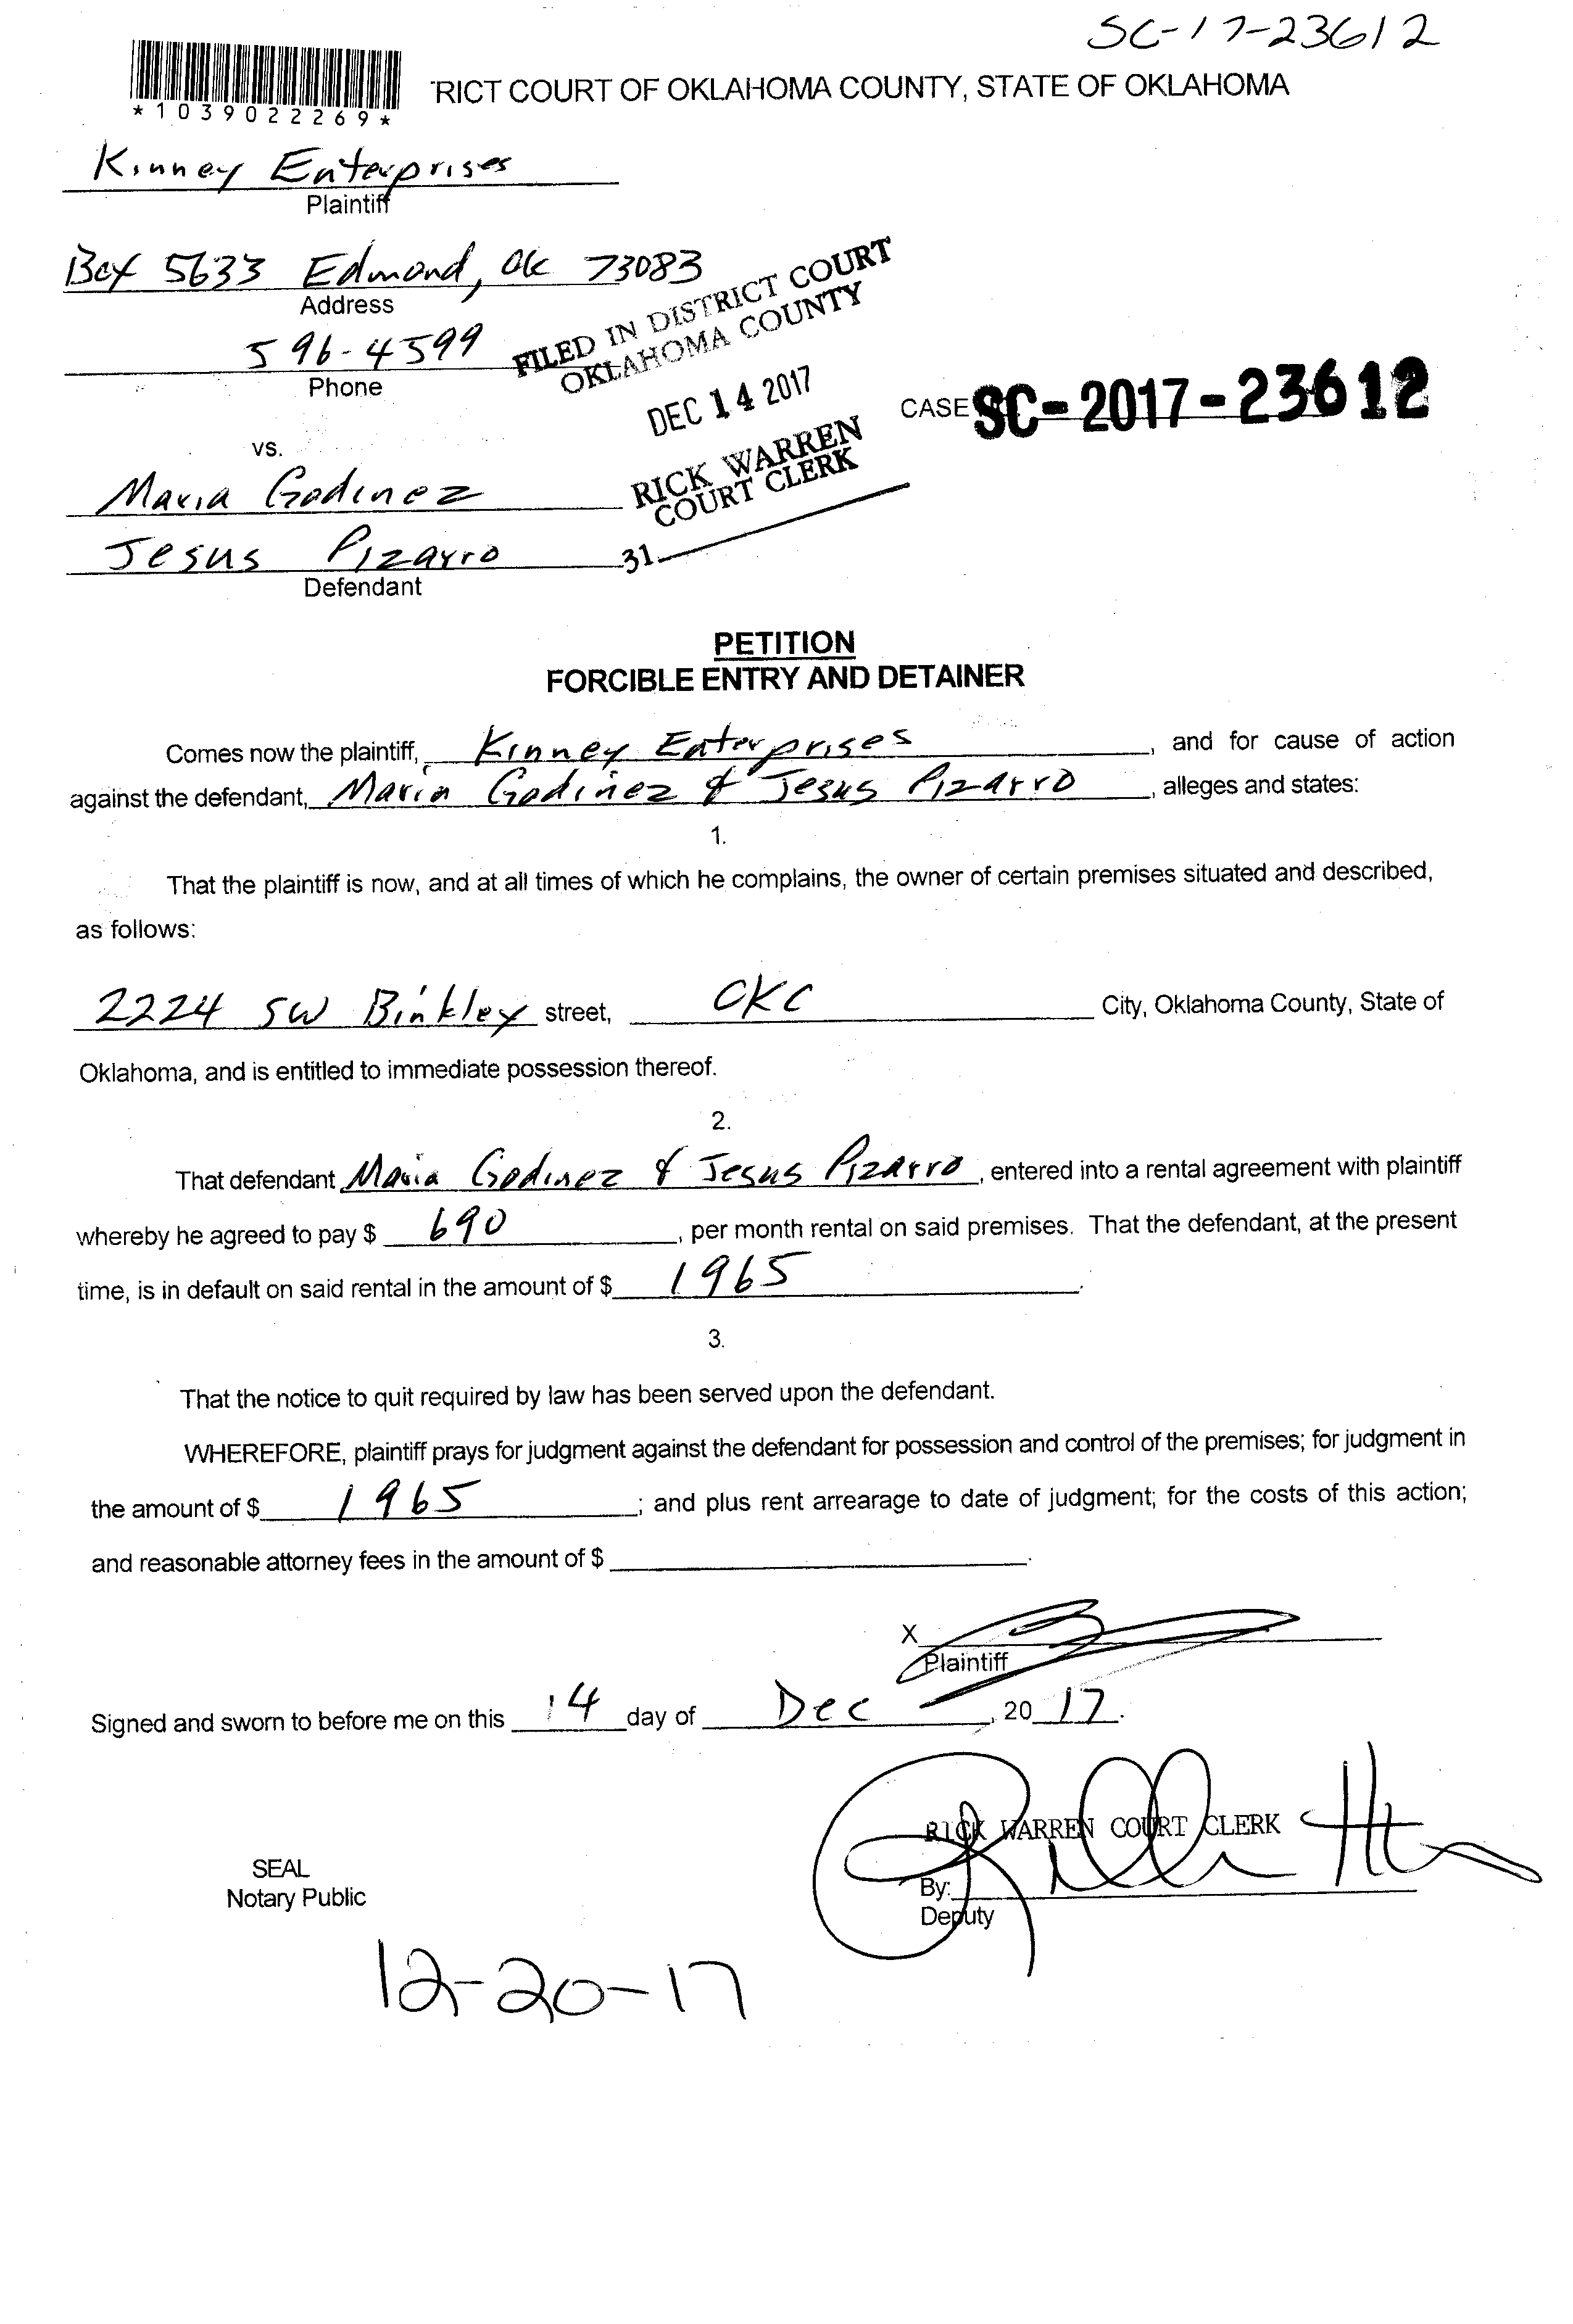 SC-17-23612
*1039022269*
'RICT COURT OF OKLAHOMA COUNTY, STATE OF OKLAHOMA
Kinney Enterprises
Plaintiff
Box 5633 Edmond, Ok 73083
Address
596-4599
Phone
FILED IN DISTRICT COURT
OKLAHOMA COUNTY
DEC 14 2017
RICK WARREN
COURT CLERK
31
CASE SC-2017-23612
vs.
Maria Godinez
Jesus Pizarro
Defendant
PETITION
FORCIBLE ENTRY AND DETAINER
Comes now the plaintiff, Kinney Enterprises, and for cause of action
against the defendant, Maria Godinez & Jesus Pizarro, alleges and states:
1.
That the plaintiff is now, and at all times of which he complains, the owner of certain premises situated and described,
as follows:
2224 SW Binkley street, OKC City, Oklahoma County, State of
Oklahoma, and is entitled to immediate possession thereof.
2.
That defendant Maria Godinez & Jesus Pizarro, entered into a rental agreement with plaintiff
whereby he agreed to pay $ 690, per month rental on said premises. That the defendant, at the present
time, is in default on said rental in the amount of $ 1965.
3.
That the notice to quit required by law has been served upon the defendant.
WHEREFORE, plaintiff prays for judgment against the defendant for possession and control of the premises; for judgment in
the amount of $ 1965; and plus rent arrearage to date of judgment; for the costs of this action;
and reasonable attorney fees in the amount of $.
X
Plaintiff
Signed and sworn to before me on this 14 day of Dec, 20 17.
RICK WARREN COURT CLERK
SEAL
Notary Public
By:
Deputy
12-20-17